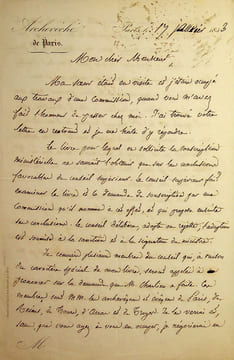 Archevêché
de Paris.
Paris, le 17 janvier 1883
Mon cher Monsieur,
Ma sœur étant en visite et j'étais occupé
aux travaux d'une commission, quand vous m'avez
fait l'honneur de passer chez moi. J'ai trouvé votre
lettre en rentrant et je me hâte d'y répondre.
Le livre pour lequel on sollicite la souscription
ministérielle ne saurait l'obtenir que sur les conclusions
favorables du conseil supérieur. Le conseil supérieur fait
examiner le livre et la demande de souscription par une
commission qu'il nomme à cet effet, et qui propose ensuite
ses conclusions. Le conseil délibère, adopte ou rejette; l'adoption
est soumise à la et à la signature du ministre.
Je connais plusieurs membres du conseil qui, à raison
du caractère spécial de mon livre, seront appelés à
prononcer sur la demande que M. Charlieu a faite. Ces
membres sont M.M. les archevêques et évêques de Paris, de
Reims, de Tours, d' et de Troyes. Je les verrai
sauf que vous ayez à vous en occuper, je négocierai